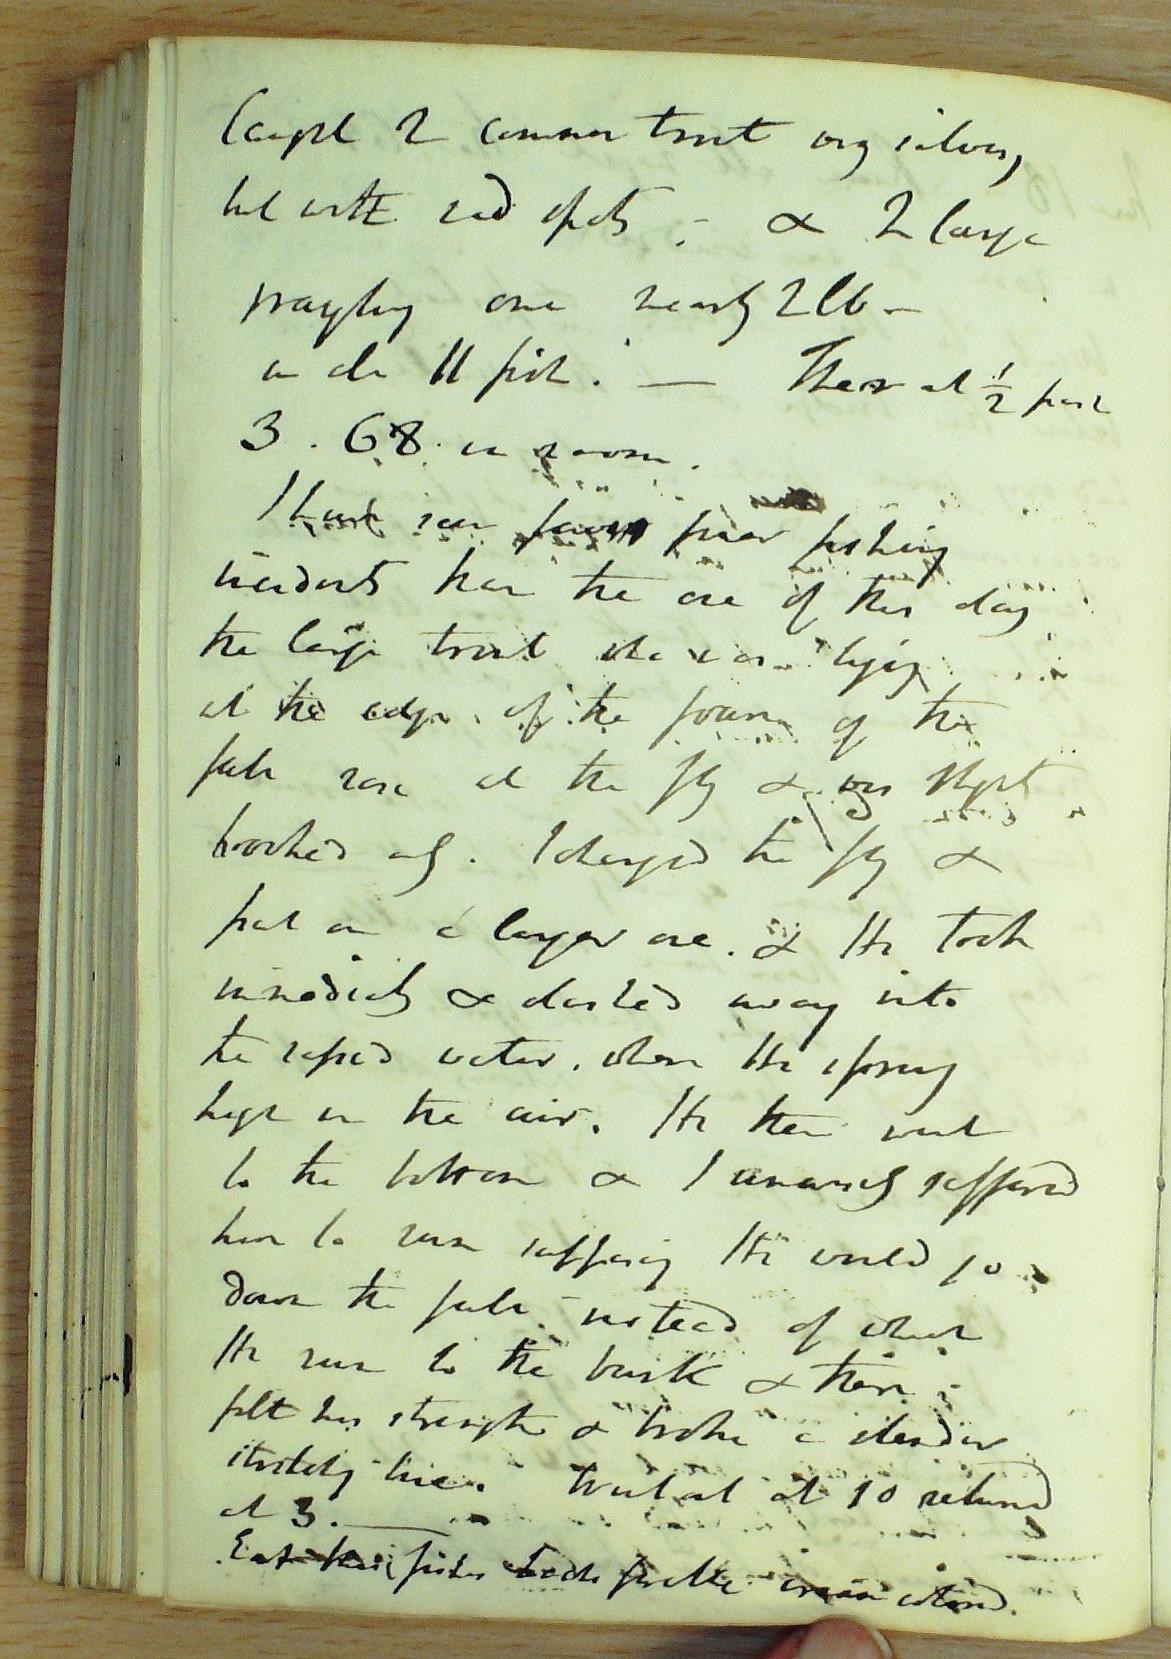 Caught 2 common trout very silvery
but with red spots; - & 2 large
grayling one nearly 2lb -
in all 11 fish. — Ther at ½ past
3. 68 in room.
I have seen few finer fishing
incidents than the one of this day
the large trout who was lying
at the edge of the foam of the
fall rose at the fly & was slight
hooked only. I changed the fly &
put on a larger one. & He took
immediately & dashed away into
the rapid water. where He sprung
high in the air. He then went
to the bottom & I unwarily suffered
him to run supposing He would go
down the fall instead of which
He run to the bank & there
felt his strength & broke a slender
link. Went out at 10 returned
at 3. —
Eat fish cream coloured.